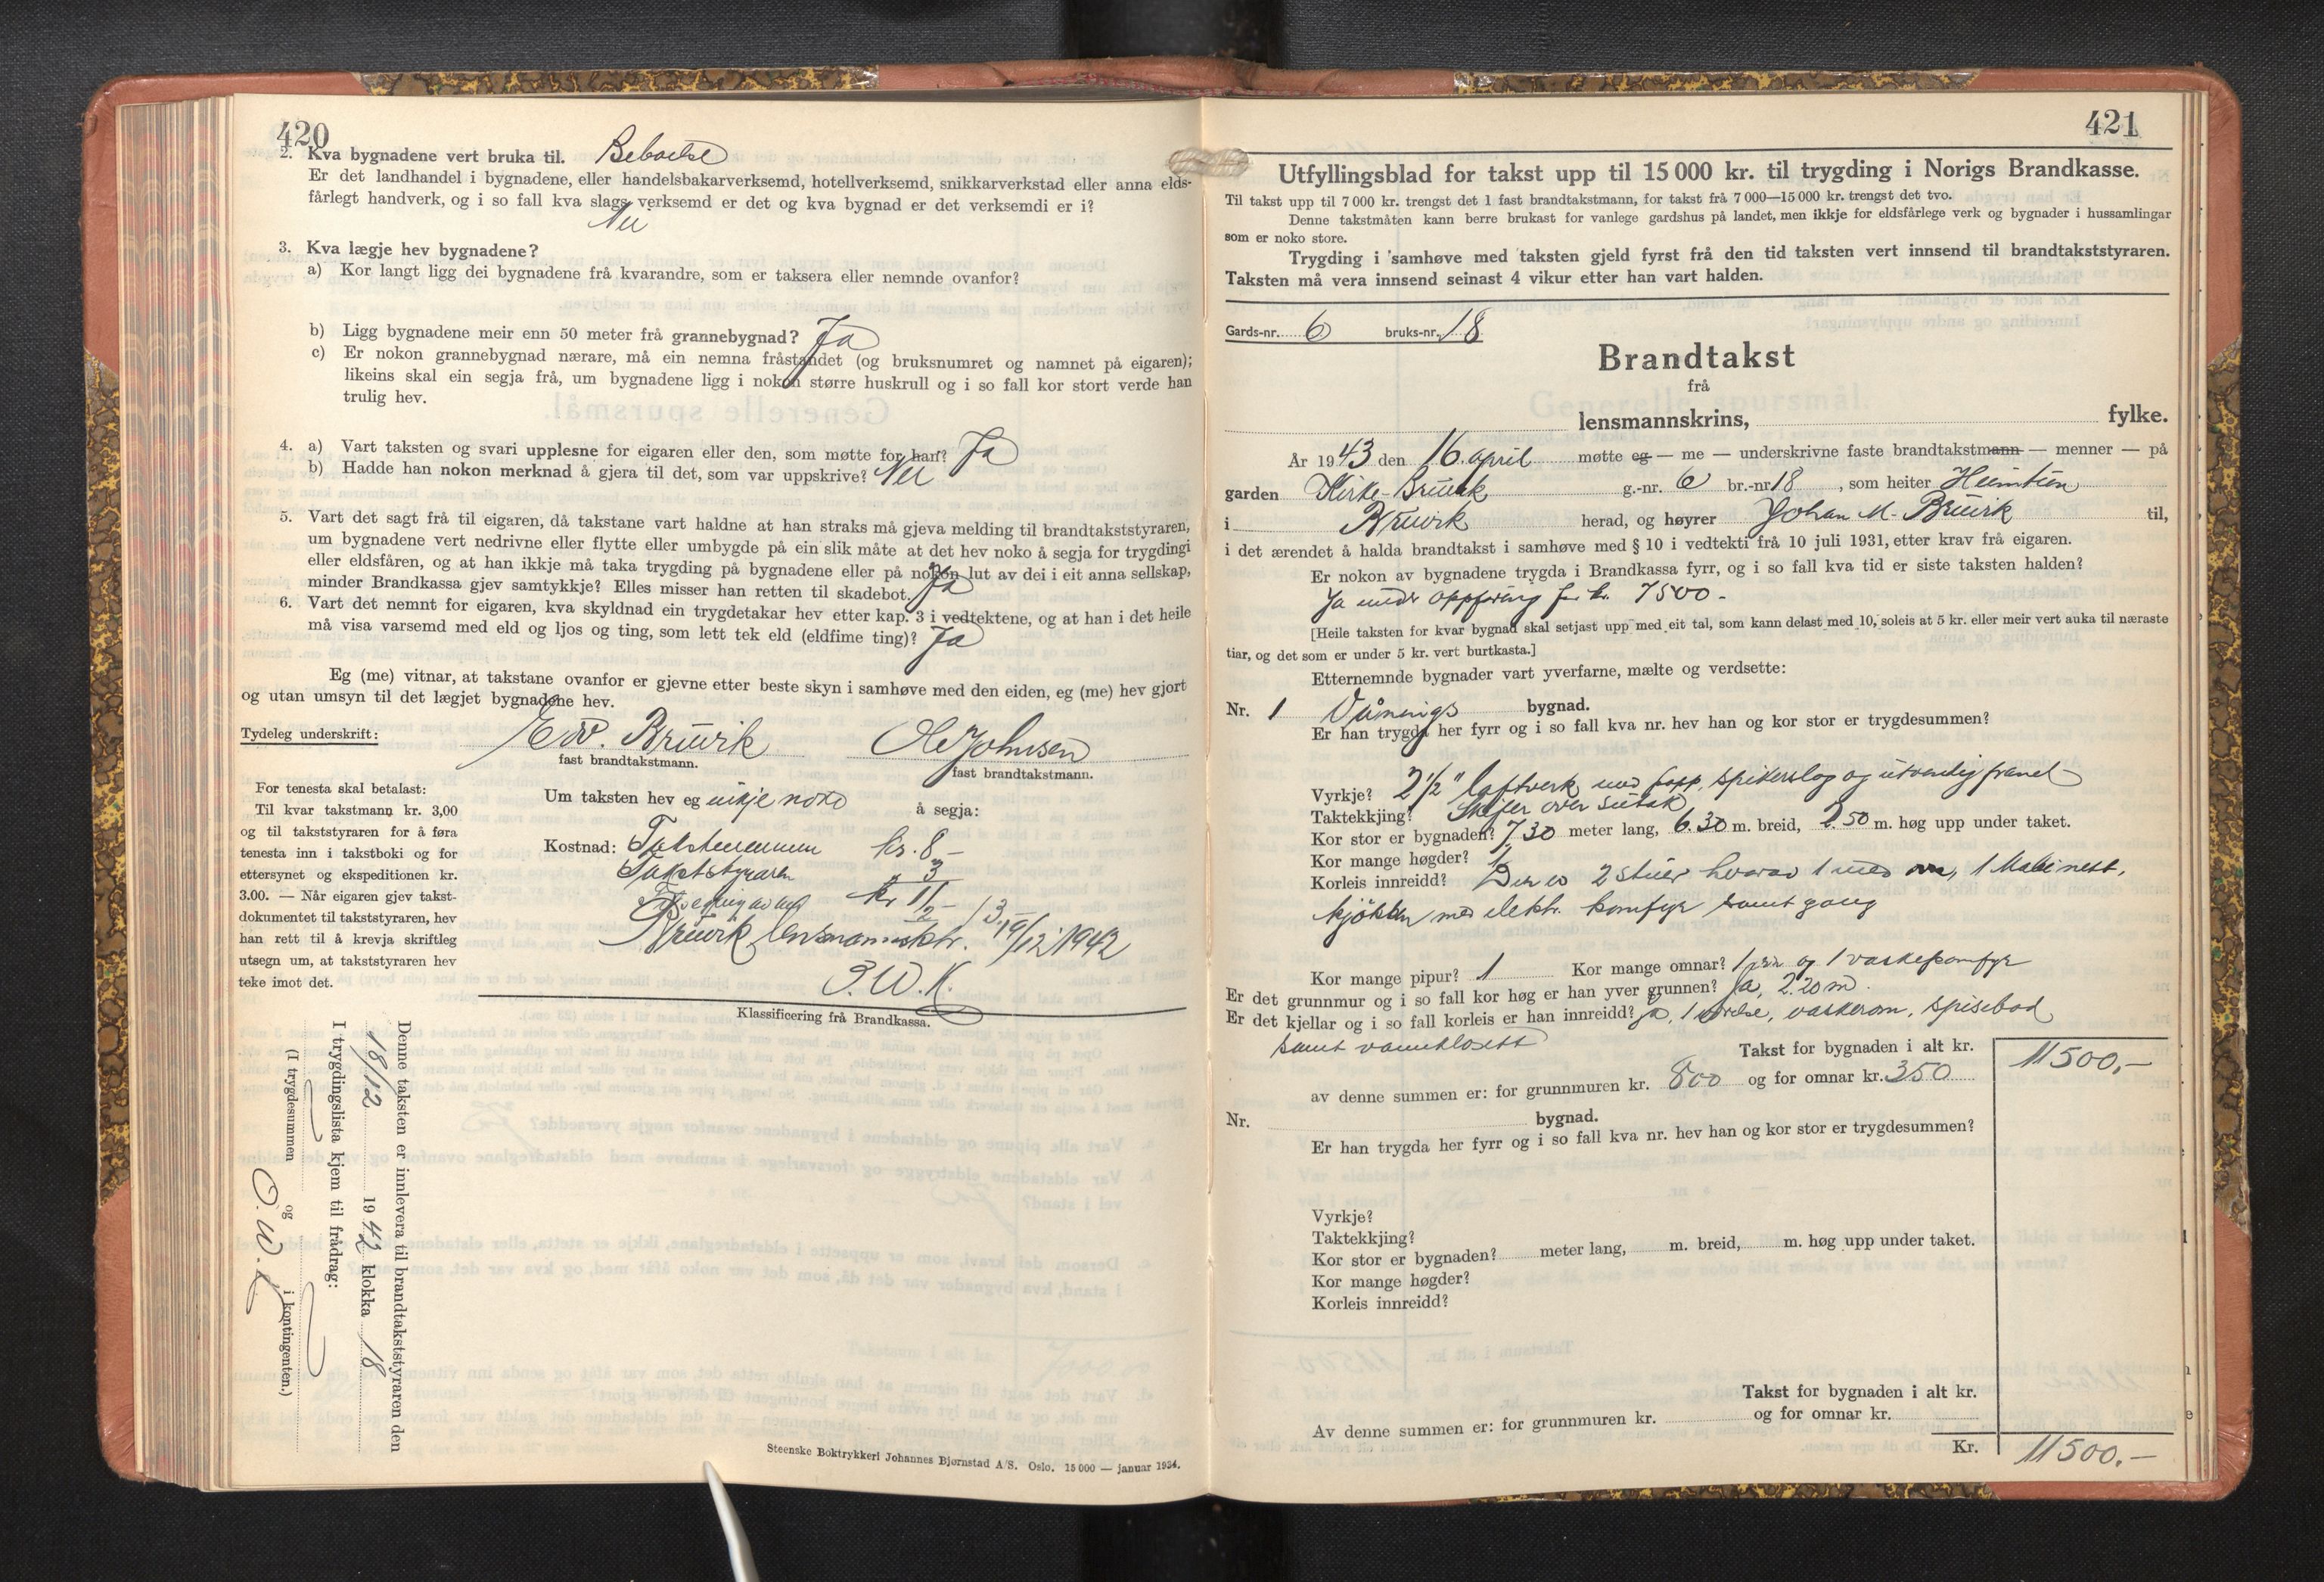 420
2. Kva bygnadene vert bruka til. Beboelse
Er det landhandel i bygnadene, eller handelsbakarverksemd, hotellverksemd, snikkarverkstad eller anna elds-
fårlegt handverk, og i so fall kva slags verksemd er det og kva bygnad er det verksemdi er i?
Nei
3. Kva lægje hev bygnadene?
a) Kor langt ligg dei bygnadene frå kvarandre, som er taksera eller nemnde ovanfor?
b) Ligg bygnadene meir enn 50 meter frå grannebygnad? Ja
c) Er nokon grannebygnad nærare, må ein nemna fråstandet (og bruksnumret og namnet på eigaren);
likeins skal ein segja frå, um bygnadene ligg i nokon større huskrull og i so fall kor stort verde han
trulig hev.
4. a) Vart taksten og svari upplesne for eigaren eller den, som møtte for han? Ja
b) Hadde han nokon merknad å gjera til det, som var uppskrive? Nei
5. Vart det sagt frå til eigaren, då takstane vart haldne at han straks må gjeva melding til brandtakststyraren,
um bygnadene vert nedrivne eller flytte eller umbygde på ein slik måte at det hev noko å segja for trygdingi
eller eldsfåren, og at han ikkje må taka trygding på bygnadene eller på nokon lut av dei i eit anna sellskap,
minder Brandkassa gjev samtykkje? Elles misser han retten til skadebot. Ja
6. Vart det nemnt for eigaren, kva skyldnad ein trygdetakar hev etter kap. 3 i vedtektene, og at han i det heile
må visa varsemd med eld og ljos og ting, som lett tek eld (eldfime ting)? Ja
Eg (me) vitnar, at takstane ovanfor er gjevne etter beste skyn i samhøve med den eiden, eg (me) hev gjort
og utan umsyn til det lægjet bygnadene hev.
Tydeleg underskrift: Edv. Bruvik Ole Johnsen
fast brandtakstmann. fast brandtakstmann.
For tenesta skal betalast:
Til kvar takstmann kr. 3,00
og til takststyraren for å føra
tenesta inn i takstboki og for
ettersynet og ekspeditionen kr.
3.00. — Når eigaren gjev takst-
dokumentet til takststyraren, hev
han rett til å krevja skriftleg
utsegn um, at takststyraren hev
teke imot det.
Um taksten hev eg inkje noko å segja:
Kostnad: Takstmennene kr. 8 -
Takststyraren " 3
kr 11 -
Bruvik lensmannsktr. 19/12 1942
O. W. K.
Klassificering frå Brandkassa.
Denne taksten er innlevera til brandtakststyraren den
18/12 1942 klokka 18
I trygdingslista kjem til frådrag:
(I trygdesummen og i kontingenten.)
O. W. K
Steenske Boktrykkeri Johannes Bjørnstad A/S. Oslo. 15 000 — januar 1934.
421
Utfyllingsblad for takst upp til 15 000 kr. til trygding i Norigs Brandkasse.
Til takst upp til 7 000 kr. trengst det 1 fast brandtakstmann, for takst frå 7 000—15 000 kr. trengst det tvo.
Denne takstmåten kann berre brukast for vanlege gardshus på landet, men ikkje for eldsfårlege verk og bygnader i hussamlingar
som er noko store.
Trygding i samhøve med taksten gjeld fyrst frå den tid taksten vert innsend til brandtakststyraren.
Taksten må vera innsend seinast 4 vikur etter han vart halden.
Gards-nr. 6 bruks-nr. 18
Brandtakst
frå
lensmannskrins, fylke.
År 1943 den 16. april møtte eg — me — underskrivne faste brandtakstmann — menner — på
garden Kirke-Bruvik g.-nr. 6 br.-nr 18, som heiter Heimtun
i Bruvik herad, og høyrer Johan M. Bruvik til,
i det ærendet å halda brandtakst i samhøve med § 10 i vedtekti frå 10 juli 1931, etter krav frå eigaren.
Er nokon av bygnadene trygda i Brandkassa fyrr, og i so fall kva tid er siste taksten halden?
Ja under oppföring for kr. 7500 -
[Heile taksten for kvar bygnad skal setjast upp med eit tal, som kann delast med 10, soleis at 5 kr. eller meir vert auka til næraste
tiar, og det som er under 5 kr. vert burtkasta.]
Etternemnde bygnader vart yverfarne, mælte og verdsette:
Nr. 1 Vånings bygnad.
Er han trygda her fyrr og i so fall kva nr. hev han og kor stor er trygdesummen?
Vyrkje? 2 1/2" laftverk med papp, spikerslag og utvendig panel
Taktekkjing? Skifer over sutak
Kor stor er bygnaden? 7.30 meter lang, 6.30 m. breid, 2.50 m. høg upp under taket.
Kor mange høgder? 1
Korleis innreidd? Der er 2 stuer hvorav 1 med ovn, 1 kabinett,
kjökken med elektr. komfyr samt gang
Kor mange pipur? 1 Kor mange omnar? 1 ovn og 1 vaskekomfyr
Er det grunnmur og i so fall kor høg er han yver grunnen? Ja, 2.20 m.
Er det kjellar og i so fall korleis er han innreidd? Ja, 1 værelse, vaskerom, spisebod
samt vannklosett
Takst for bygnaden i alt kr. 11500,-
av denne summen er: for grunnmuren kr. 800 og for omnar kr. 350
Nr. bygnad.
Er han trygda her fyrr og i so fall kva nr. hev han og kor stor er trygdesummen?
Vyrkje?
Taktekkjing?
Kor stor er bygnaden? meter lang, m. breid, m. høg upp under taket.
Kor mange høgder?
Korleis innreidd?
Takst for bygnaden i alt kr.
Av denne summen er: for grunnmuren kr. og for omnar kr.
Kr. 11500.-